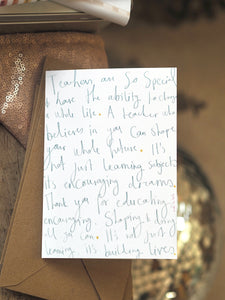 Teachers are So Special
have the ability to change
a whole life. A teacher who
believes in you can shape
your whole future. It's
not just learning subjects
it's encouraging dreams.
Thank you for educating &
encouraging. Shaping & doing
all you can. It's not just
learning it's building lives